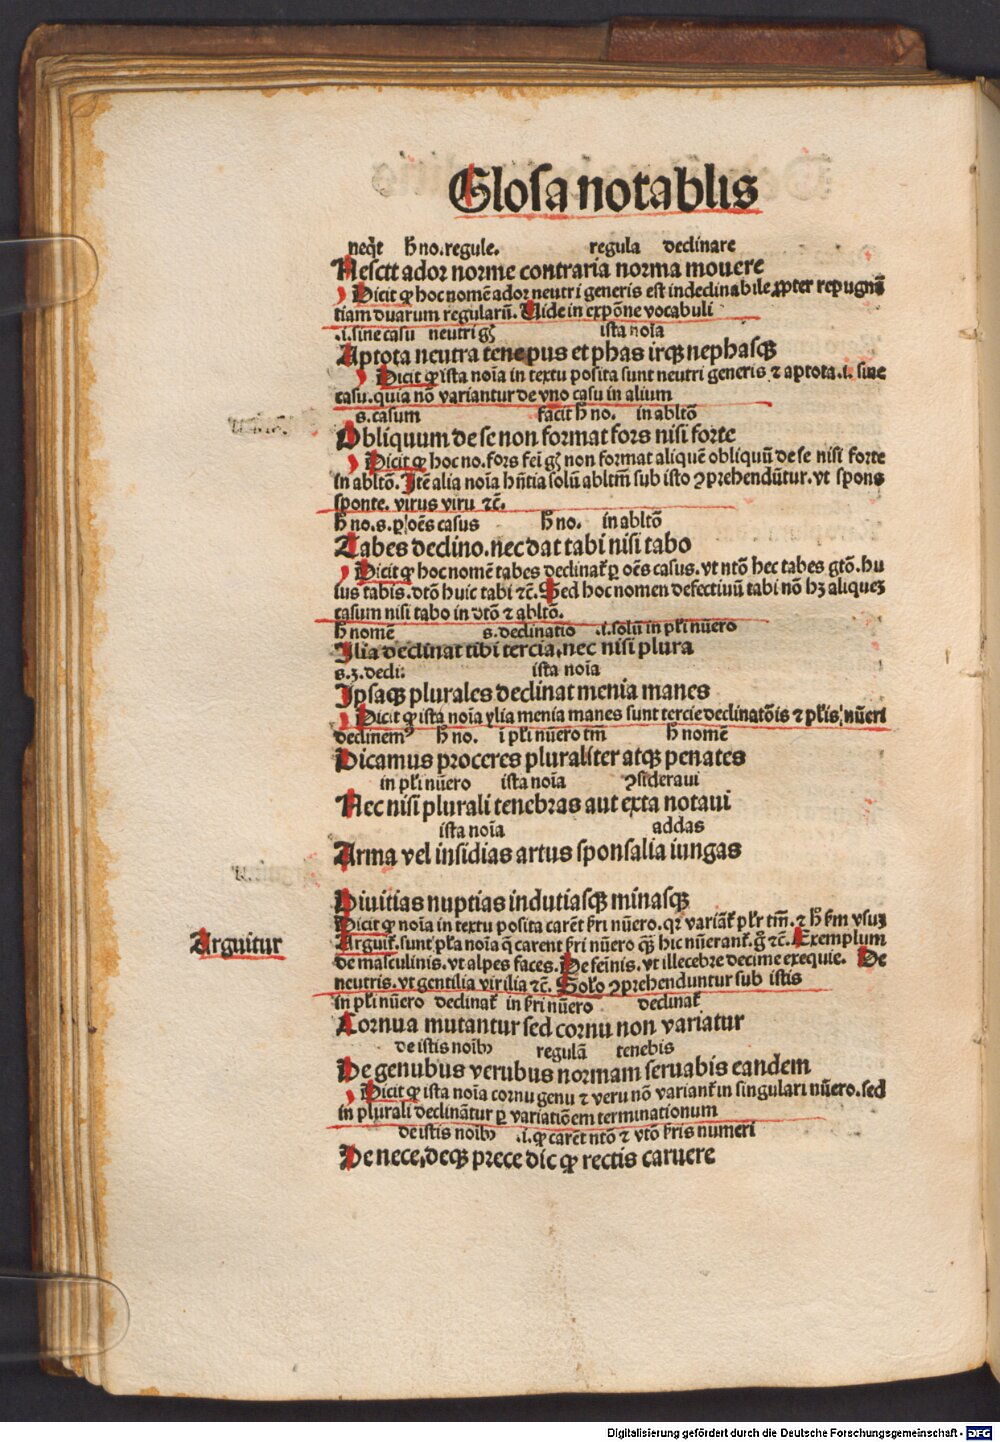 Glosa notablis
neq̄t h̄ no. regule. regula declinare
Nescit ador norme contraria norma mouere
Dicit ꝙ hoc nomē ador neutri generis est indeclinabile ꝓpter repugnā
tiam duarum regularū. Uide in expōne vocabuli
.i. sine casu neutri gn̄ ista noīa
Aptota neutra tene pus et phas irqꝫ nephasqꝫ
Dicit ꝙ ista noīa in textu posita sunt neutri generis ⁊ aptota .i. sine
casu. quia nō variantur de vno casu in alium
s. casum facit h̄ no. in abltō
Obliquum de se non format fors nisi forte
Dicit ꝙ hoc no. fors fei gn̄ non format aliquē obliquū de se nisi forte
in abltō. Itē alia noīa hn̄tia solū abltm̄ sub isto ꝯprehendūtur. vt spons
sponte. virus viru ⁊c̄.
h̄ no. s. ꝑ oēs casus h̄ no. in abltō
Tabes declino. nec dat tabi nisi tabo
Dicit ꝙ hoc nomē tabes declinat᷑ ꝑ oēs casus. vt ntō hec tabes gtō. hu
ius tabis. dtō huic tabi ⁊c̄. Sed hoc nomen defectiuū tabi nō hꝫ aliqueꝫ
casum nisi tabo in dtō ⁊ abltō.
h̄ nomē s. declinatio .i. solū in pl̄i nūero
Ilia declinat tibi tercia. nec nisi plura
s. 3. decli: ista noīa
Ipsaqꝫ plurales declinat menia manes
Dicit ꝙ ista noīa ylia menia manes sunt tercie declinatōis ⁊ pl̄is nūeri
declinemꝰ h̄ no. i pl̄i nūero tm̄ h̄ nomē
Dicamus proceres pluraliter atqꝫ penates
in pl̄i nūero ista noīa ꝯsideraui
Nec nisi plurali tenebras aut exta notaui
ista noīa addas
Arma vel insidias artus sponsalia iungas
Diuitias nuptias indutiasqꝫ minasqꝫ
Dicit ꝙ noīa in textu posita carēt sr̄i nūero. qr variāt᷑ pl̄r tm̄. ⁊ h̄ s̄m vsuꝫ
Arguitur
Arguit᷑. sunt pl̄a noīa q̄ carent sr̄i nūero qꝫ hic nūerant᷑. gͦ ⁊c̄. Exemplum
de masculinis. vt alpes faces. De feīnis. vt illecebre decime exequie. De
neutris. vt gentilia virilia ⁊c̄. Solō ꝯprehenduntur sub istis
in pl̄i nūero declinat᷑ in sr̄i nūero declinat᷑
Cornua mutantur sed cornu non variatur
de istis noībꝰ regulā tenebis
De genubus verubus normam seruabis eandem
Dicit ꝙ ista noīa cornu genu ⁊ veru nō variant᷑ in singulari nūero. sed
in plurali declināntur ꝑ variatiōem terminationum
de istis noībꝰ .i. ꝙ carēt ntō ⁊ vtō sr̄is numeri
De nece, deqꝫ prece dic ꝙ rectis caruere
Digitalisierung gefördert durch die Deutsche Forschungsgemeinschaft - DFG